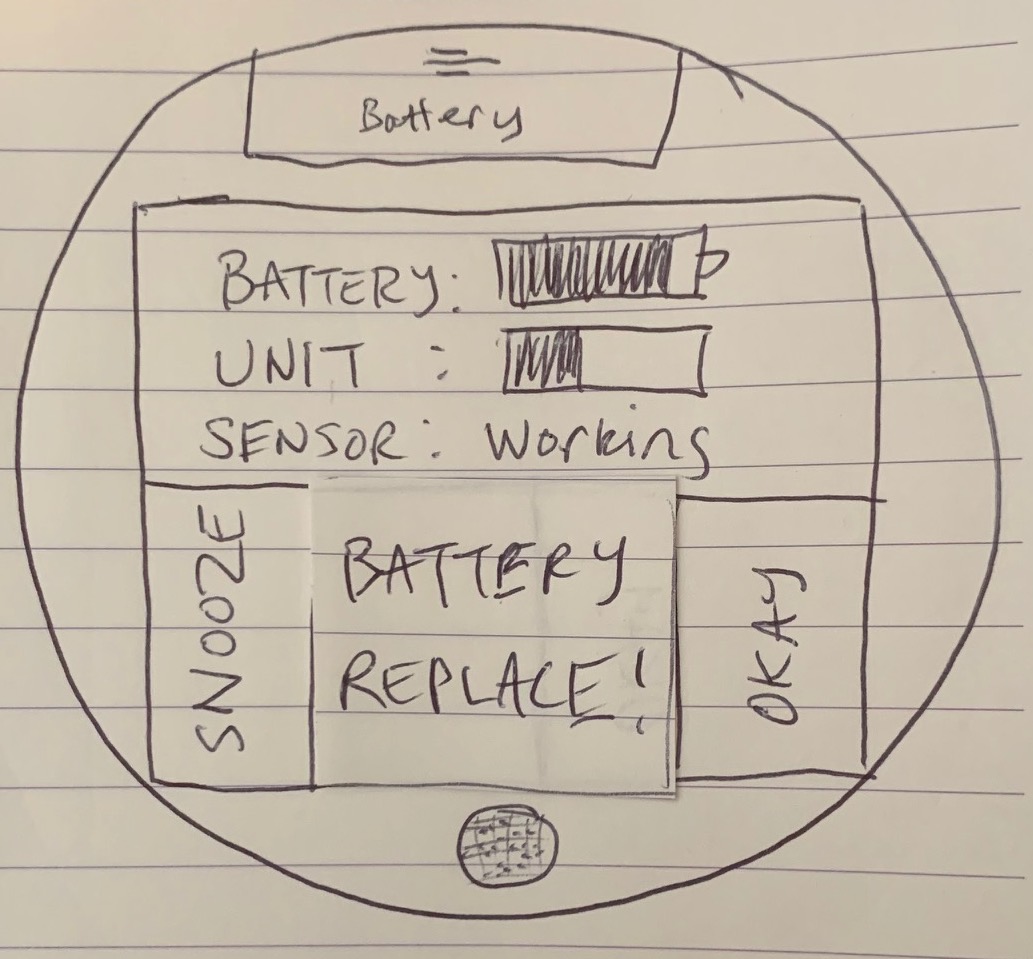 Battery
BATTERY:
UNIT :
SENSOR: Working
SNOOZE
BATTERY
REPLACE!
OKAY